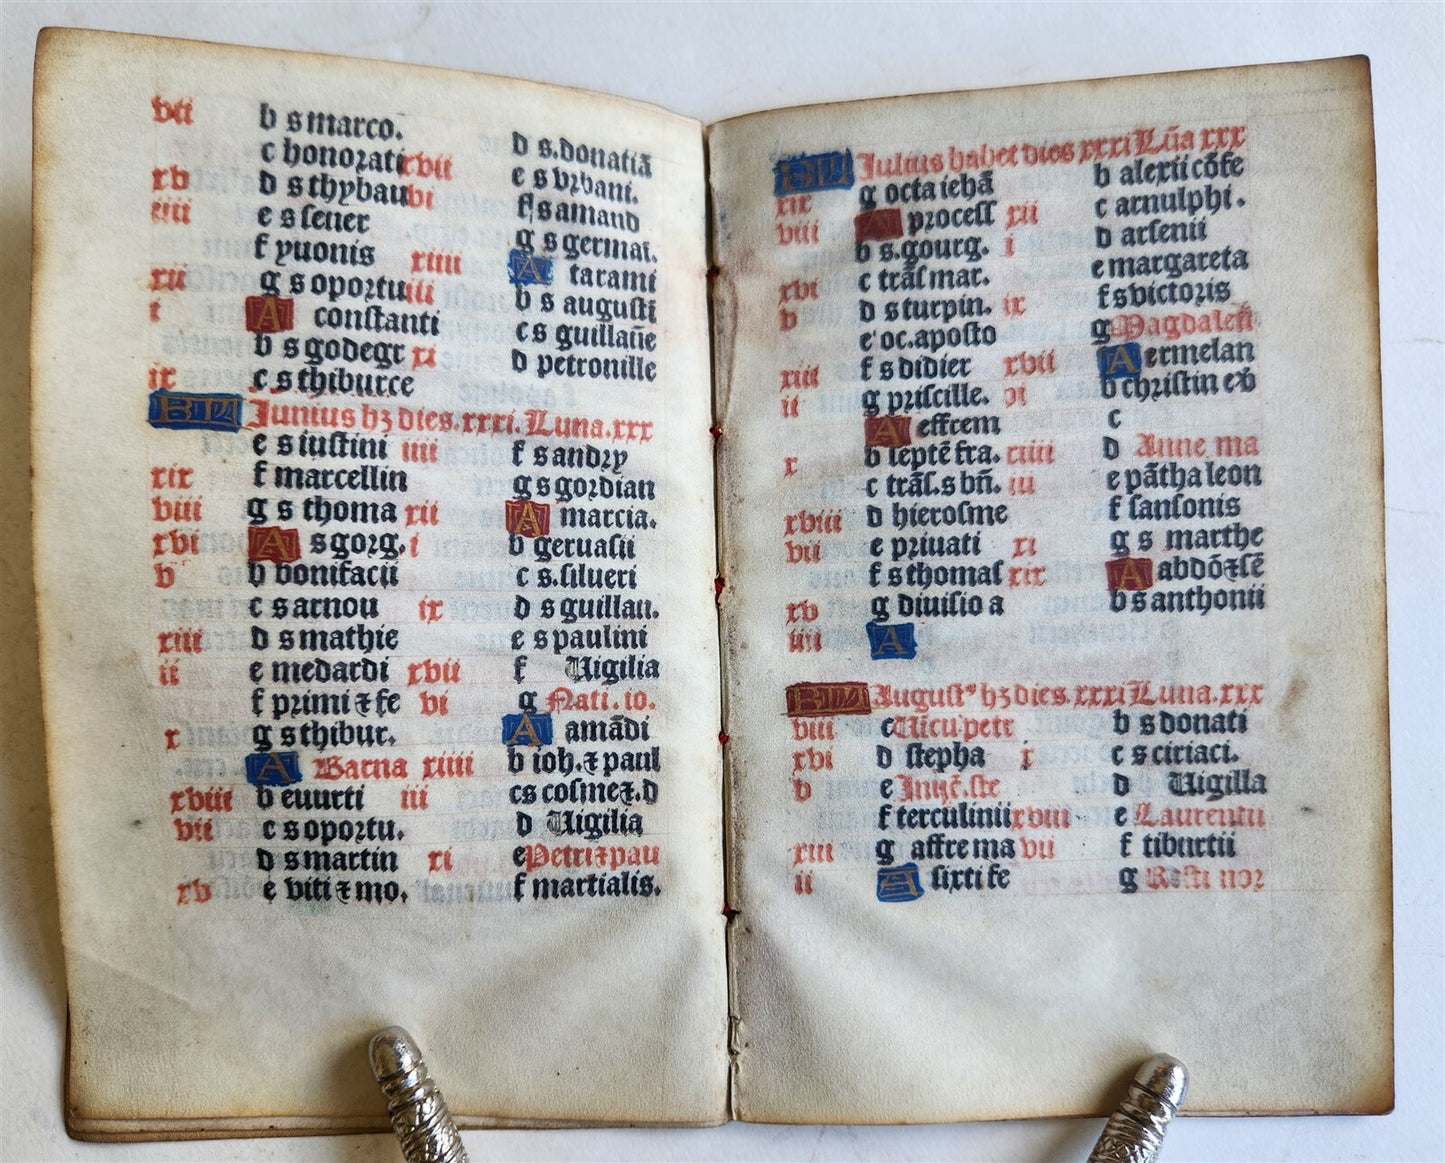 vii b s marco.
c honorati
xv d s thybau
iiii e s seuer
f yuonis
xii g s oportu
i A constanti
b s godegr
ix c s thiburce
xvii d s.donatiā
vi e s vrbani.
f s amand
g s germai.
xiiii A tarami
iii b s augusti
c s guillaūe
xi d petronille
KL Iunius hȝ dies.xxxi.Luna.xxx
e s iustini
xix f marcellin
viii g s thoma
xvi A s gorg.
v b bonifacii
c s arnou
xiii d s mathie
ii e medardi
f primi ⁊ fe
x g s thibur.
A Barna
xviii b euurti
vii c s oportu.
d s martin
xv e viti ⁊ mo.
iiii f s andry
g s gordian
xii A marcia.
i b geruasii
c s.silueri
ix d s guillau.
e s paulini
xvii f Uigilia
vi g Nati.io.
A amādi
xiiii b ioh.⁊ paul
iii c s cosme ⁊.d
d Uigilia
xi e Petri ⁊ pau
f martialis.
KL Iulius habet dies xxxi Lūa xxx
xix g octa iehā
viii A process
b s.gourg.
xvi c trās mar.
v d s turpin.
e oc.aposto
xiii f s didier
ii g priscille.
A effrem
x b septē fra.
c trās.s bñ.
xviii d hierosme
vii e priuati
f s thomas
xv g diuisio a
iiii A
b alexii cōfe
xii c arnulphi.
i d arsenii
e margareta
ix f s victoris
g Magdalen
xvii A ermelan
vi b christin ev
c
xiiii d Anne ma
iii e pātha leon
f sansonis
xi g s marthe
xix A abdō ⁊ sē
b s anthonii
KL August⁹ hȝ dies.xxxi Luna.xxx
viii c Uicu petr
xvi d stepha
v e
f terculinii
xiii g affre ma
ii A sixti fe
b s donati
x c s ciriaci.
d Uigilla
xviii e Laurentii
vii f tiburtii
g